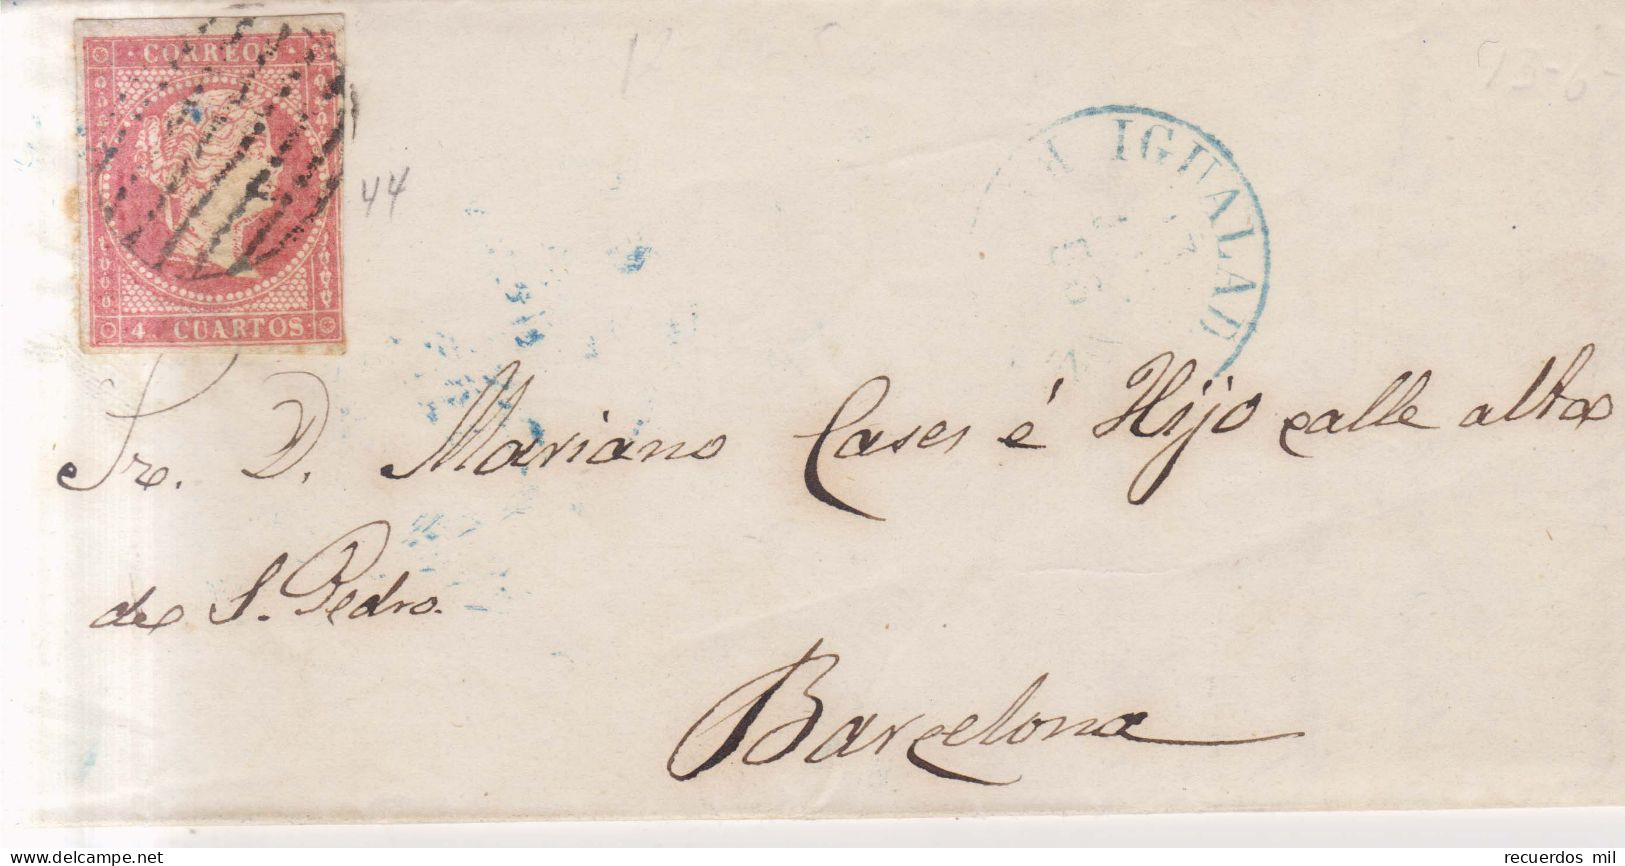 CORREOS
4 CUARTOS
44
IGUALADA
Sr. D. Mariano Cases é Hijo calle alta
de S. Pedro.
Barcelona
recuerdos mil